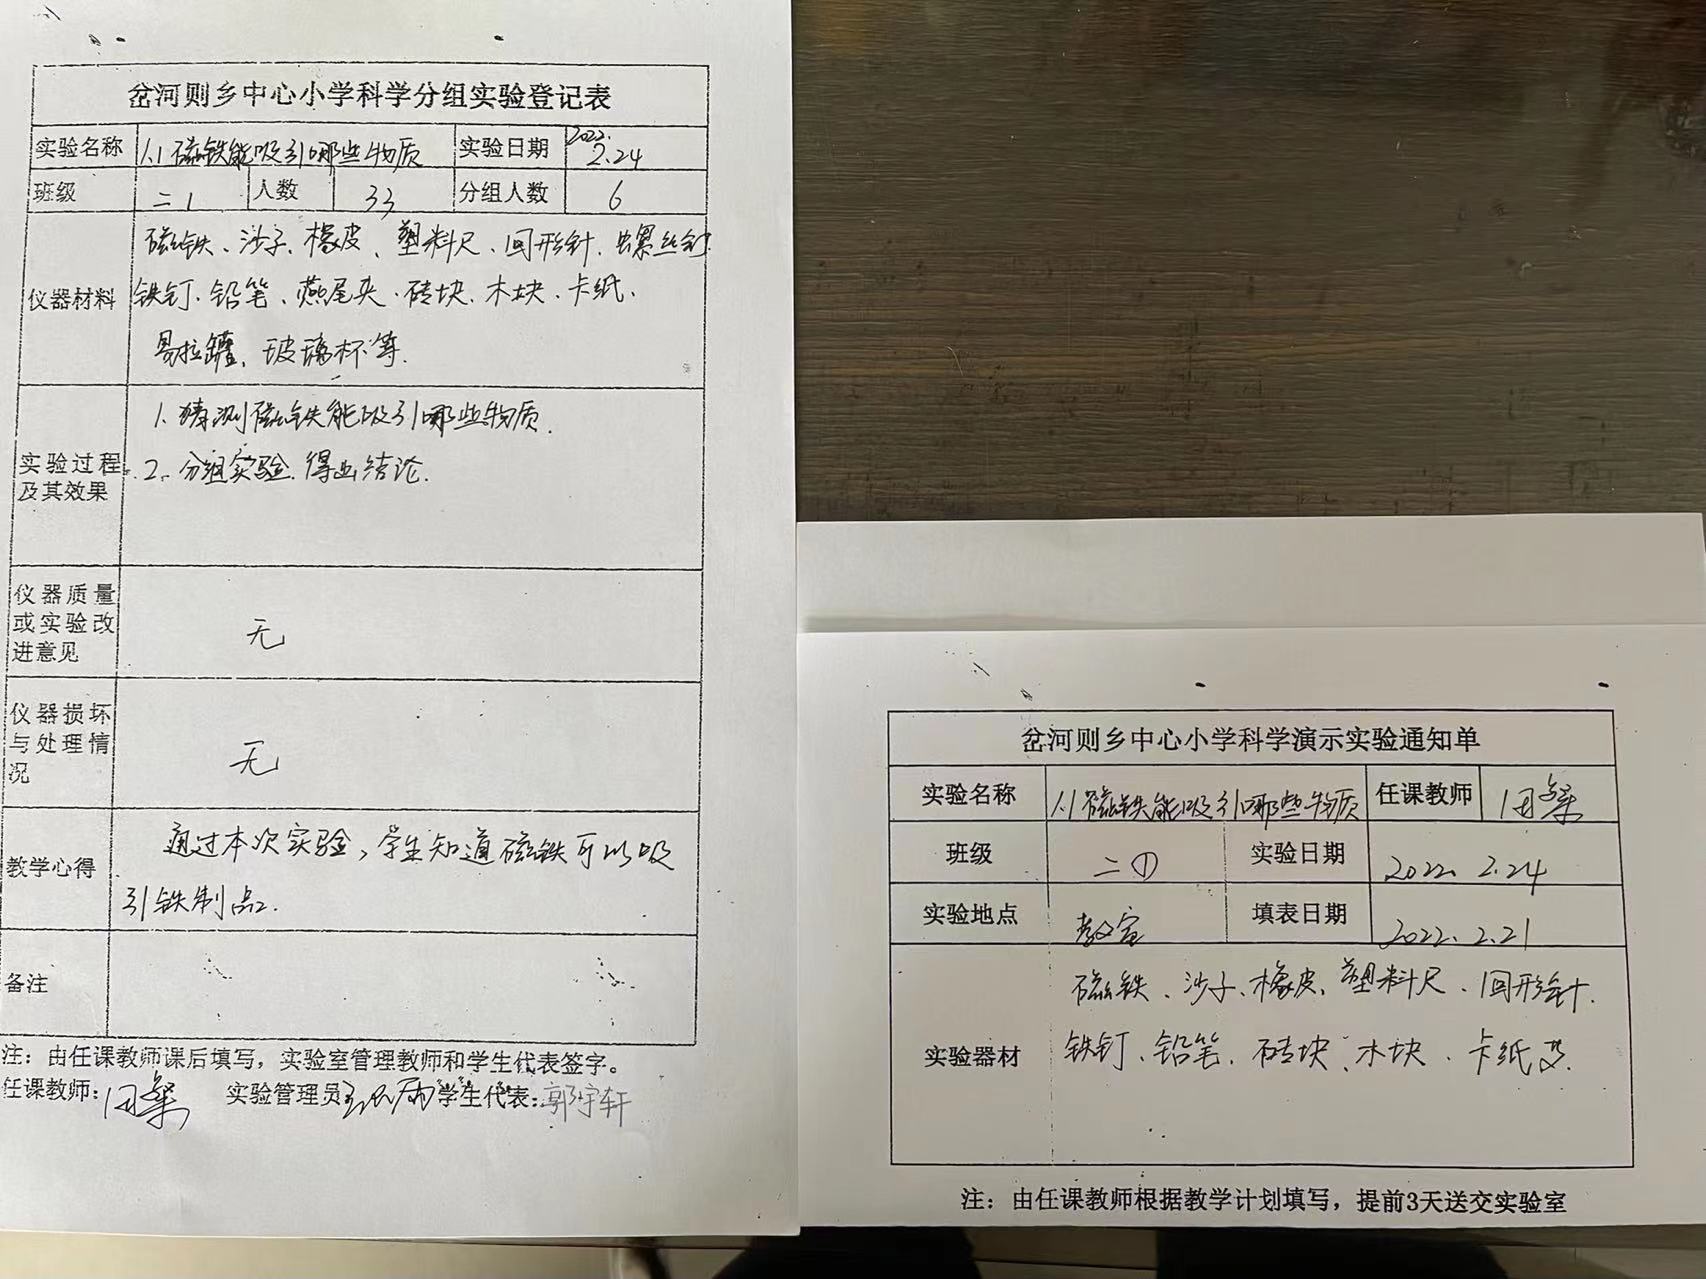 岔河则乡中心小学科学分组实验登记表
实验名称 1.1磁铁能吸引哪些物质 实验日期 2022. 2.24
班级 二1 人数 33 分组人数 6
仪器材料
磁铁、沙子、橡皮、塑料尺、回形针、螺丝钉
铁钉、铅笔、燕尾夹、砖块、木块、卡纸、
易拉罐、玻璃杯等.
实验过程及其效果
1. 猜测磁铁能吸引哪些物质.
2. 分组实验.得出结论.
仪器质量
或实验改
进意见
无
仪器损坏
与处理情
况
无
教学心得
通过本次实验,学生知道磁铁可以吸
引铁制品.
备注
注：由任课教师课后填写，实验室管理教师和学生代表签字。
任课教师: 实验管理员 学生代表:郭宇轩
岔河则乡中心小学科学演示实验通知单
实验名称 1.1磁铁能吸引哪些物质 任课教师
班级 二① 实验日期 2022. 2.24
实验地点 教室 填表日期 2022. 2.21
实验器材
磁铁、沙子、橡皮、塑料尺、回形针.
铁钉、铅笔、砖块、木块、卡纸
注：由任课教师根据教学计划填写，提前3天送交实验室